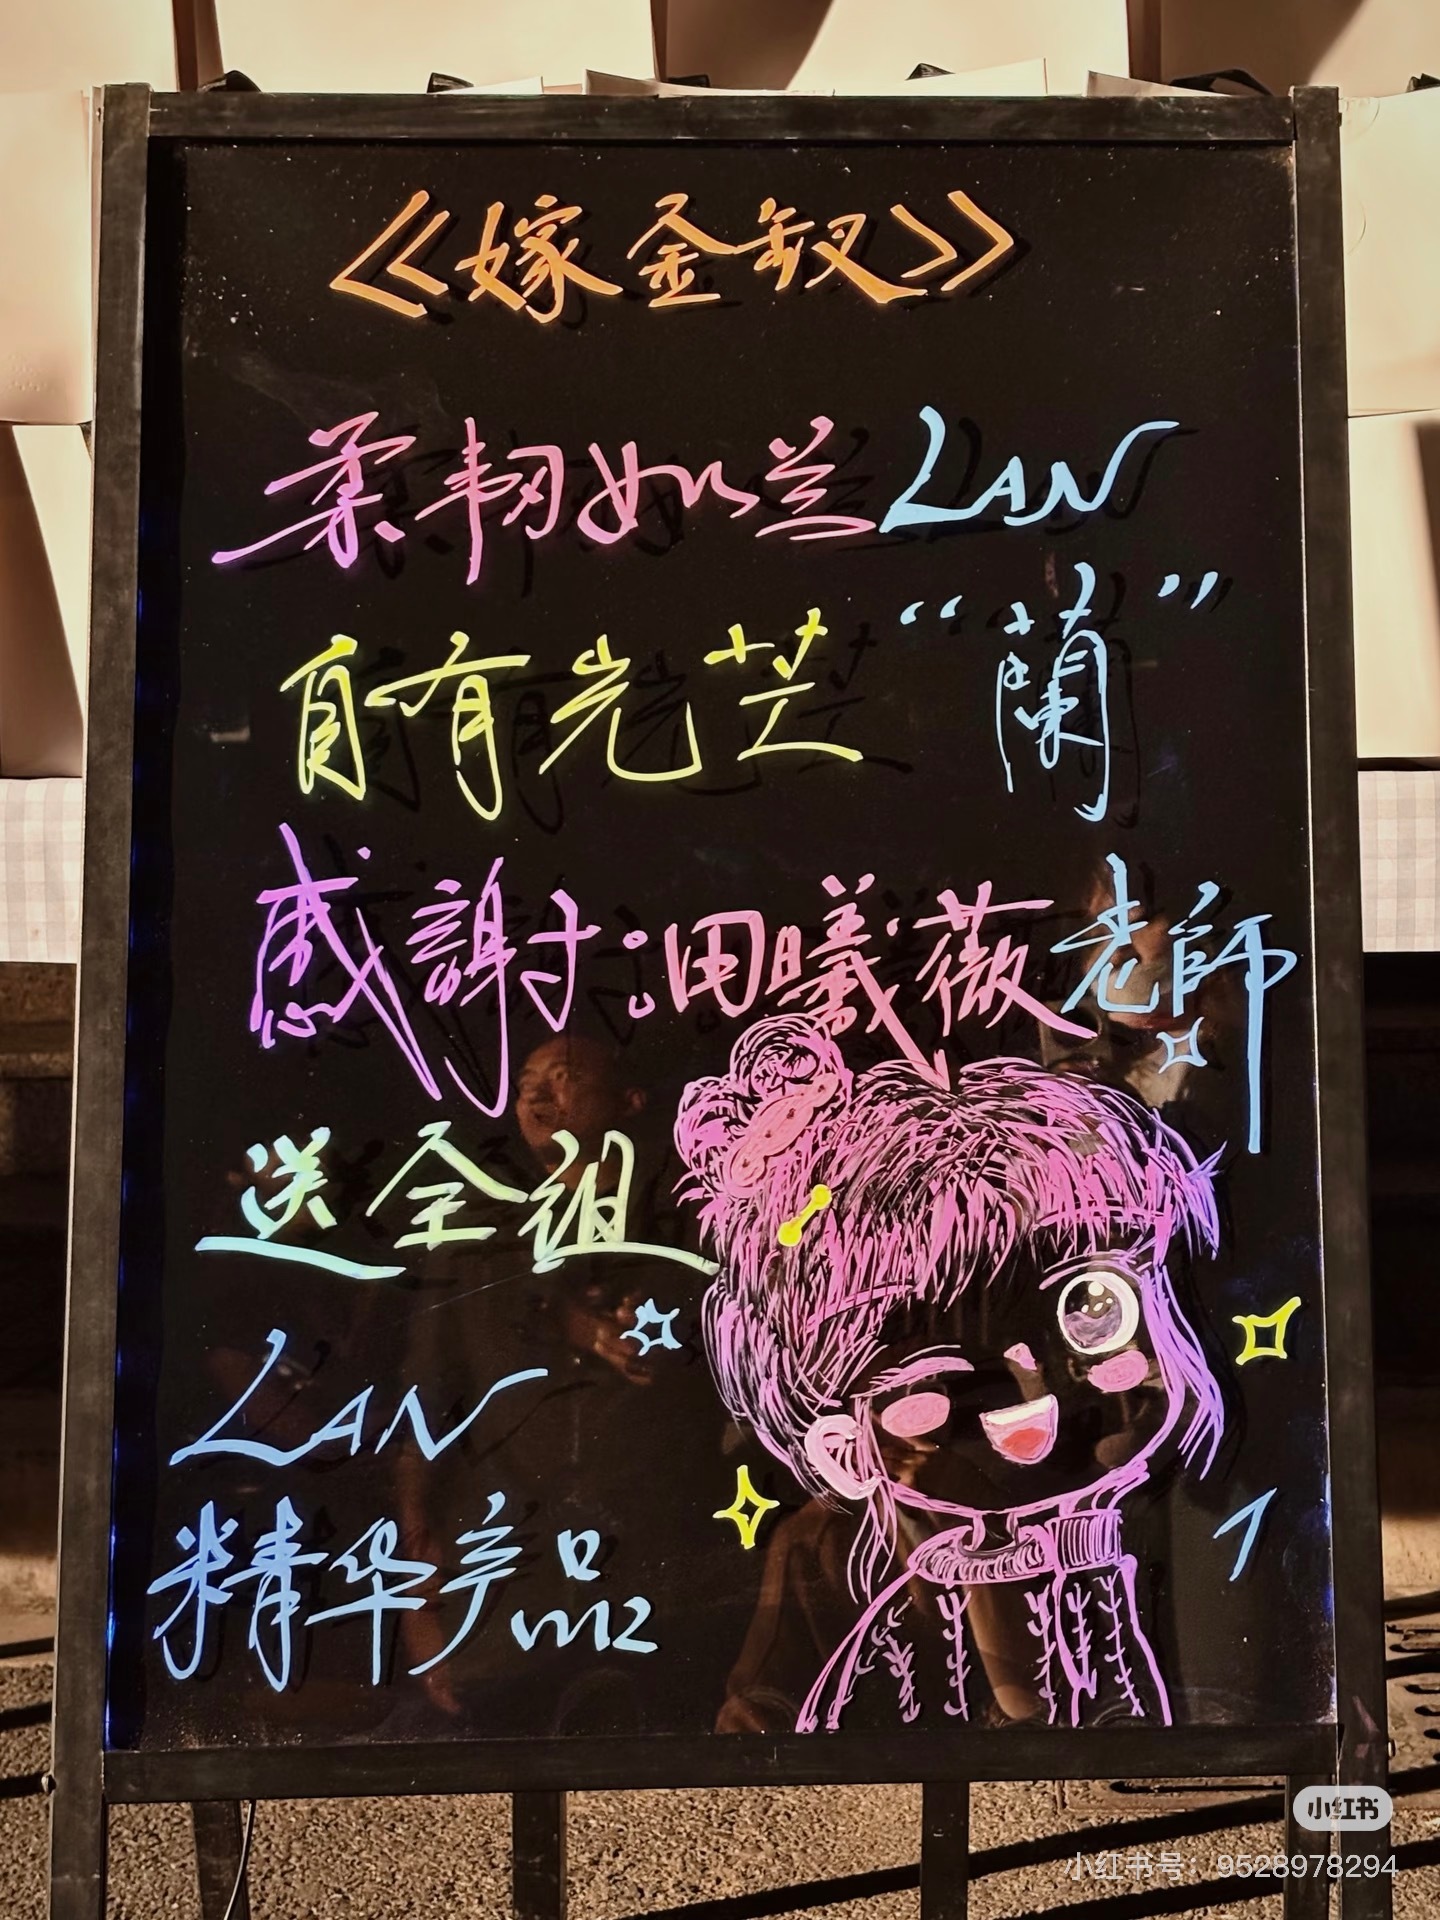 《嫁金钗》
柔韧如兰LAN
自有光芒“蘭”
感謝于:田曦薇老師
送全组
LAN
精华产品
小红书
小红书号：9528978294